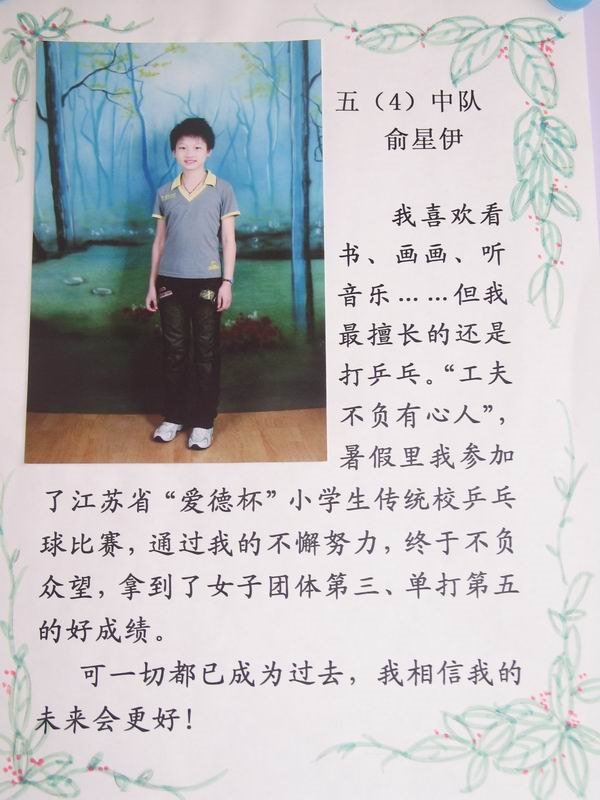 五（4）中队
俞星伊
我喜欢看
书、画画、听
音乐……但我
最擅长的还是
打乒乓。“工夫
不负有心人”，
暑假里我参加
了江苏省“爱德杯”小学生传统校乒乓
球比赛，通过我的不懈努力，终于不负
众望，拿到了女子团体第三、单打第五
的好成绩。
可一切都已成为过去，我相信我的
未来会更好！